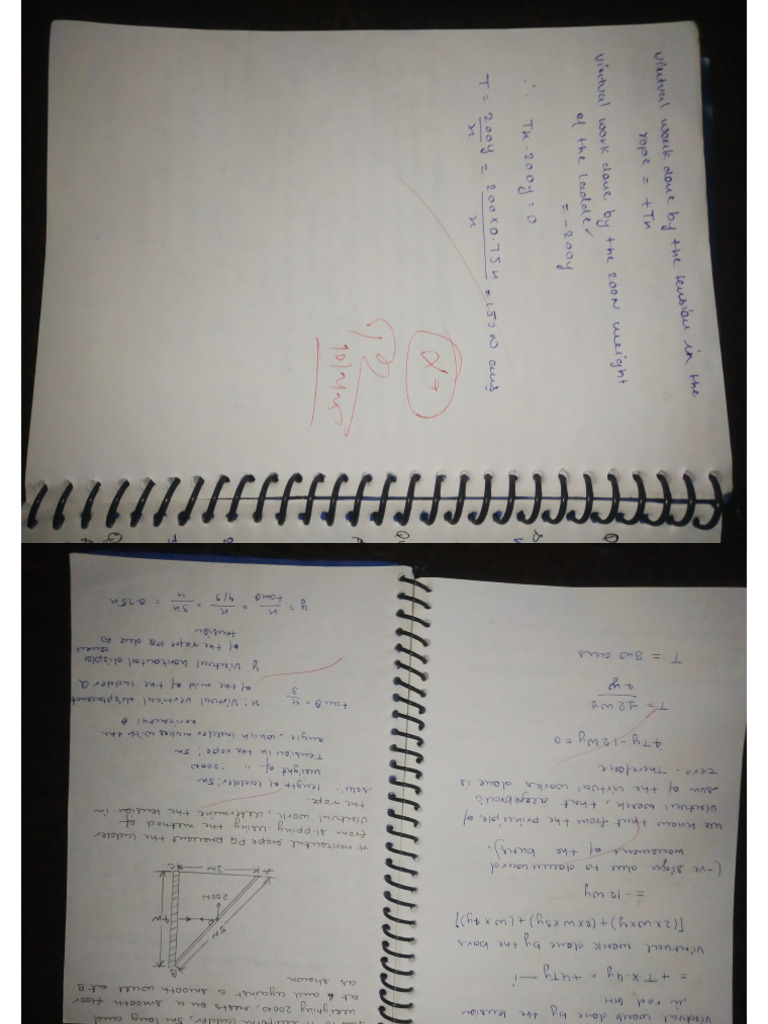 Virtual work done by the tension in the
rope = +Tx
Virtual work done by the 200N weight
of the ladder
= -200y
∴ Tx - 200y = 0
T = 200y/x = 200×0.75x/x = 150N ans
weighing 200N, rests on a smooth floor
at A and against a smooth wall at B
as shown
B
5m
200N
4m
3m
C
A horizontal rope PQ prevent the ladder
from slipping using the method of
virtual work, determine the tension in
the rope.
Soln:- length of ladder: 5m
weight of " : 200N
Tension in the rope:
angle, which ladder makes with the
horizontal θ
tanθ = 4/3 x: Virtual vertical displacement
of the mid of the ladder Q
y virtual horizontal displa
of the rope PQ due to
tension
y = x/tanθ = x/4/3 = 3x/4 = 0.75x
Virtual work done by the tension
in rod
= +T×4y = +4Ty —i
Virtual work done by the bars
[(2×w×y)+(2×w×3y)+(w×4y)]
= -12wy
(-ve sign due to downward
of the bars).
we know that from the principle of
virtual work, that
sum of the virtual works done is
zero. Therefore
4Ty - 12wy = 0
T = 12wy/4y
T = 3w ans